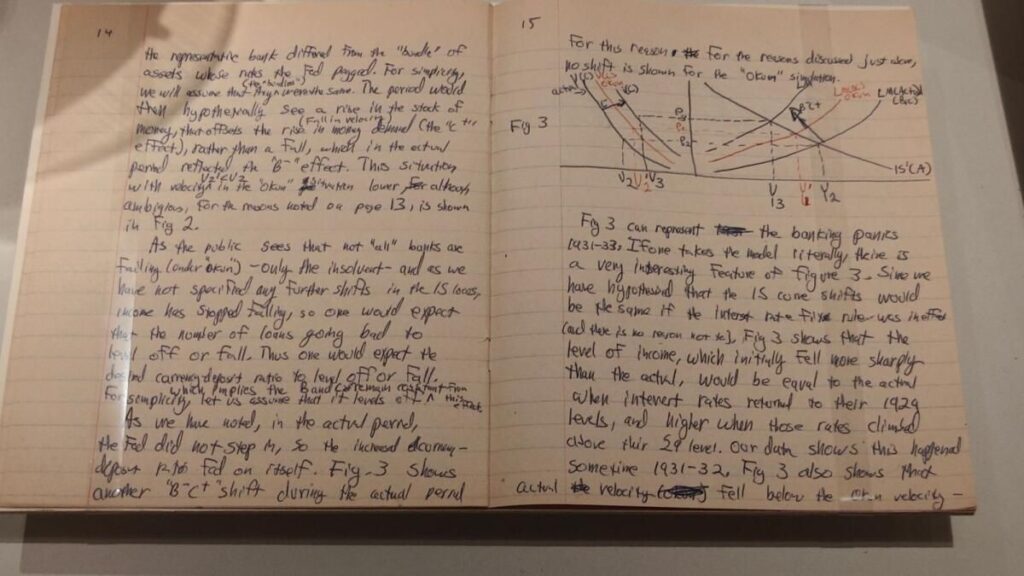 14
the representative bank differed from the "bundle" of
assets whose rates the Fed pegged. For simplicity,
we will assume that they were the same. The period would
then hypothetically see a rise in the stock of
(Fall in velocity)
money, that offsets the rise in money demand (the "C+"
effect), rather than a Fall, which in the actual
period reflected the "B-" effect. This situation
V2'<V2
with velocity in the "Okun" situation lower although
ambiguous, for the reasons noted on page 13, is shown
in Fig 2.
As the public sees that not "all" banks are
Failing (under "Okun") - only the insolvent - and as we
have not specified any further shifts in the IS locus,
income has stopped falling, so one would expect
that the number of loans going bad to
level off or fall. Thus one would expect the
desired currency deposit ratio to level off or fall,
which implies the B and C remain constant from this
For simplicity, let us assume that it levels off
As we have noted, in the actual period,
the Fed did not step in, so the increased currency-
deposit ratio Fed on itself. Fig. 3 shows
another "B-C+" shift during the actual period
15
For this reason, For the reasons discussed just above,
no shift is shown for the "Okun" simulation.
actual
V(C)
Okun
LM
Okun
Fig 3
IS'(A)
V2 V2' V3
Y3 Y2
Fig 3 can represent the banking panics
1931-33. If one takes the model literally, there is
a very interesting Feature of Figure 3. Since we
have hypothesized that the IS curve shifts would
be the same if the interest rate Fix rule was in effect
(and there is no reason not to), Fig 3 shows that the
level of income, which initially Fell more sharply
than the actual, would be equal to the actual
when interest rates returned to their 1929
levels, and higher when those rates climbed
above their 29 level. Our data shows this happened
sometime 1931-32. Fig 3 also shows that
actual velocity Fell below the Okun velocity -